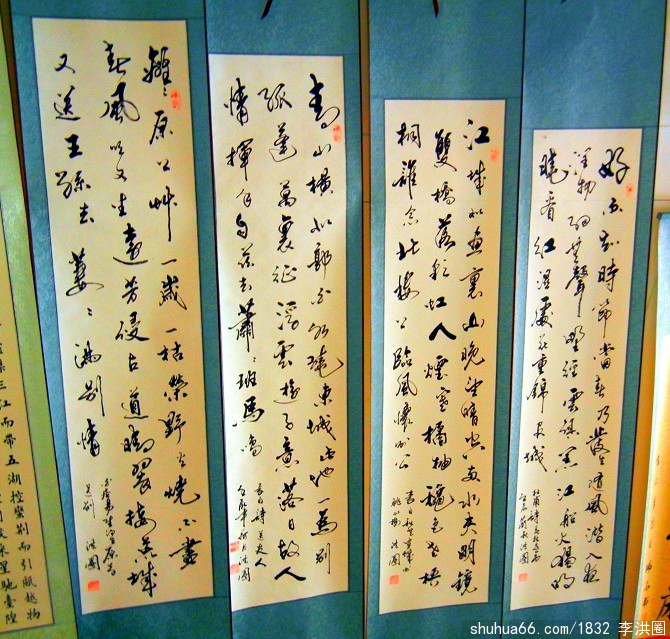 好雨知時節當春乃發生隨風潛入夜
潤物细無聲野徑雲俱黑江船火獨明
曉看红湿處花重錦官城
江城如畫裏山晚望晴空兩水夾明鏡
雙橋落彩虹人煙寒橘柚穐色老梧
桐誰念北樓上臨風懷謝公
青山橫北郭白水繞東城此地一為別
孤蓬萬裏征浮雲遊子意落日故人
情揮手自茲去蕭蕭班馬鳴
李白詩送友人
洪圈
離離原上艸一歲一枯榮野火燒不盡
春風吹又生遠芳侵古道晴翠接荒城
又送王孫去萋萋滿別情
洪圈
三江而帶五湖控蠻荆而引甌越物
星馳臺隍
shuhua66.com/1832 李洪圈